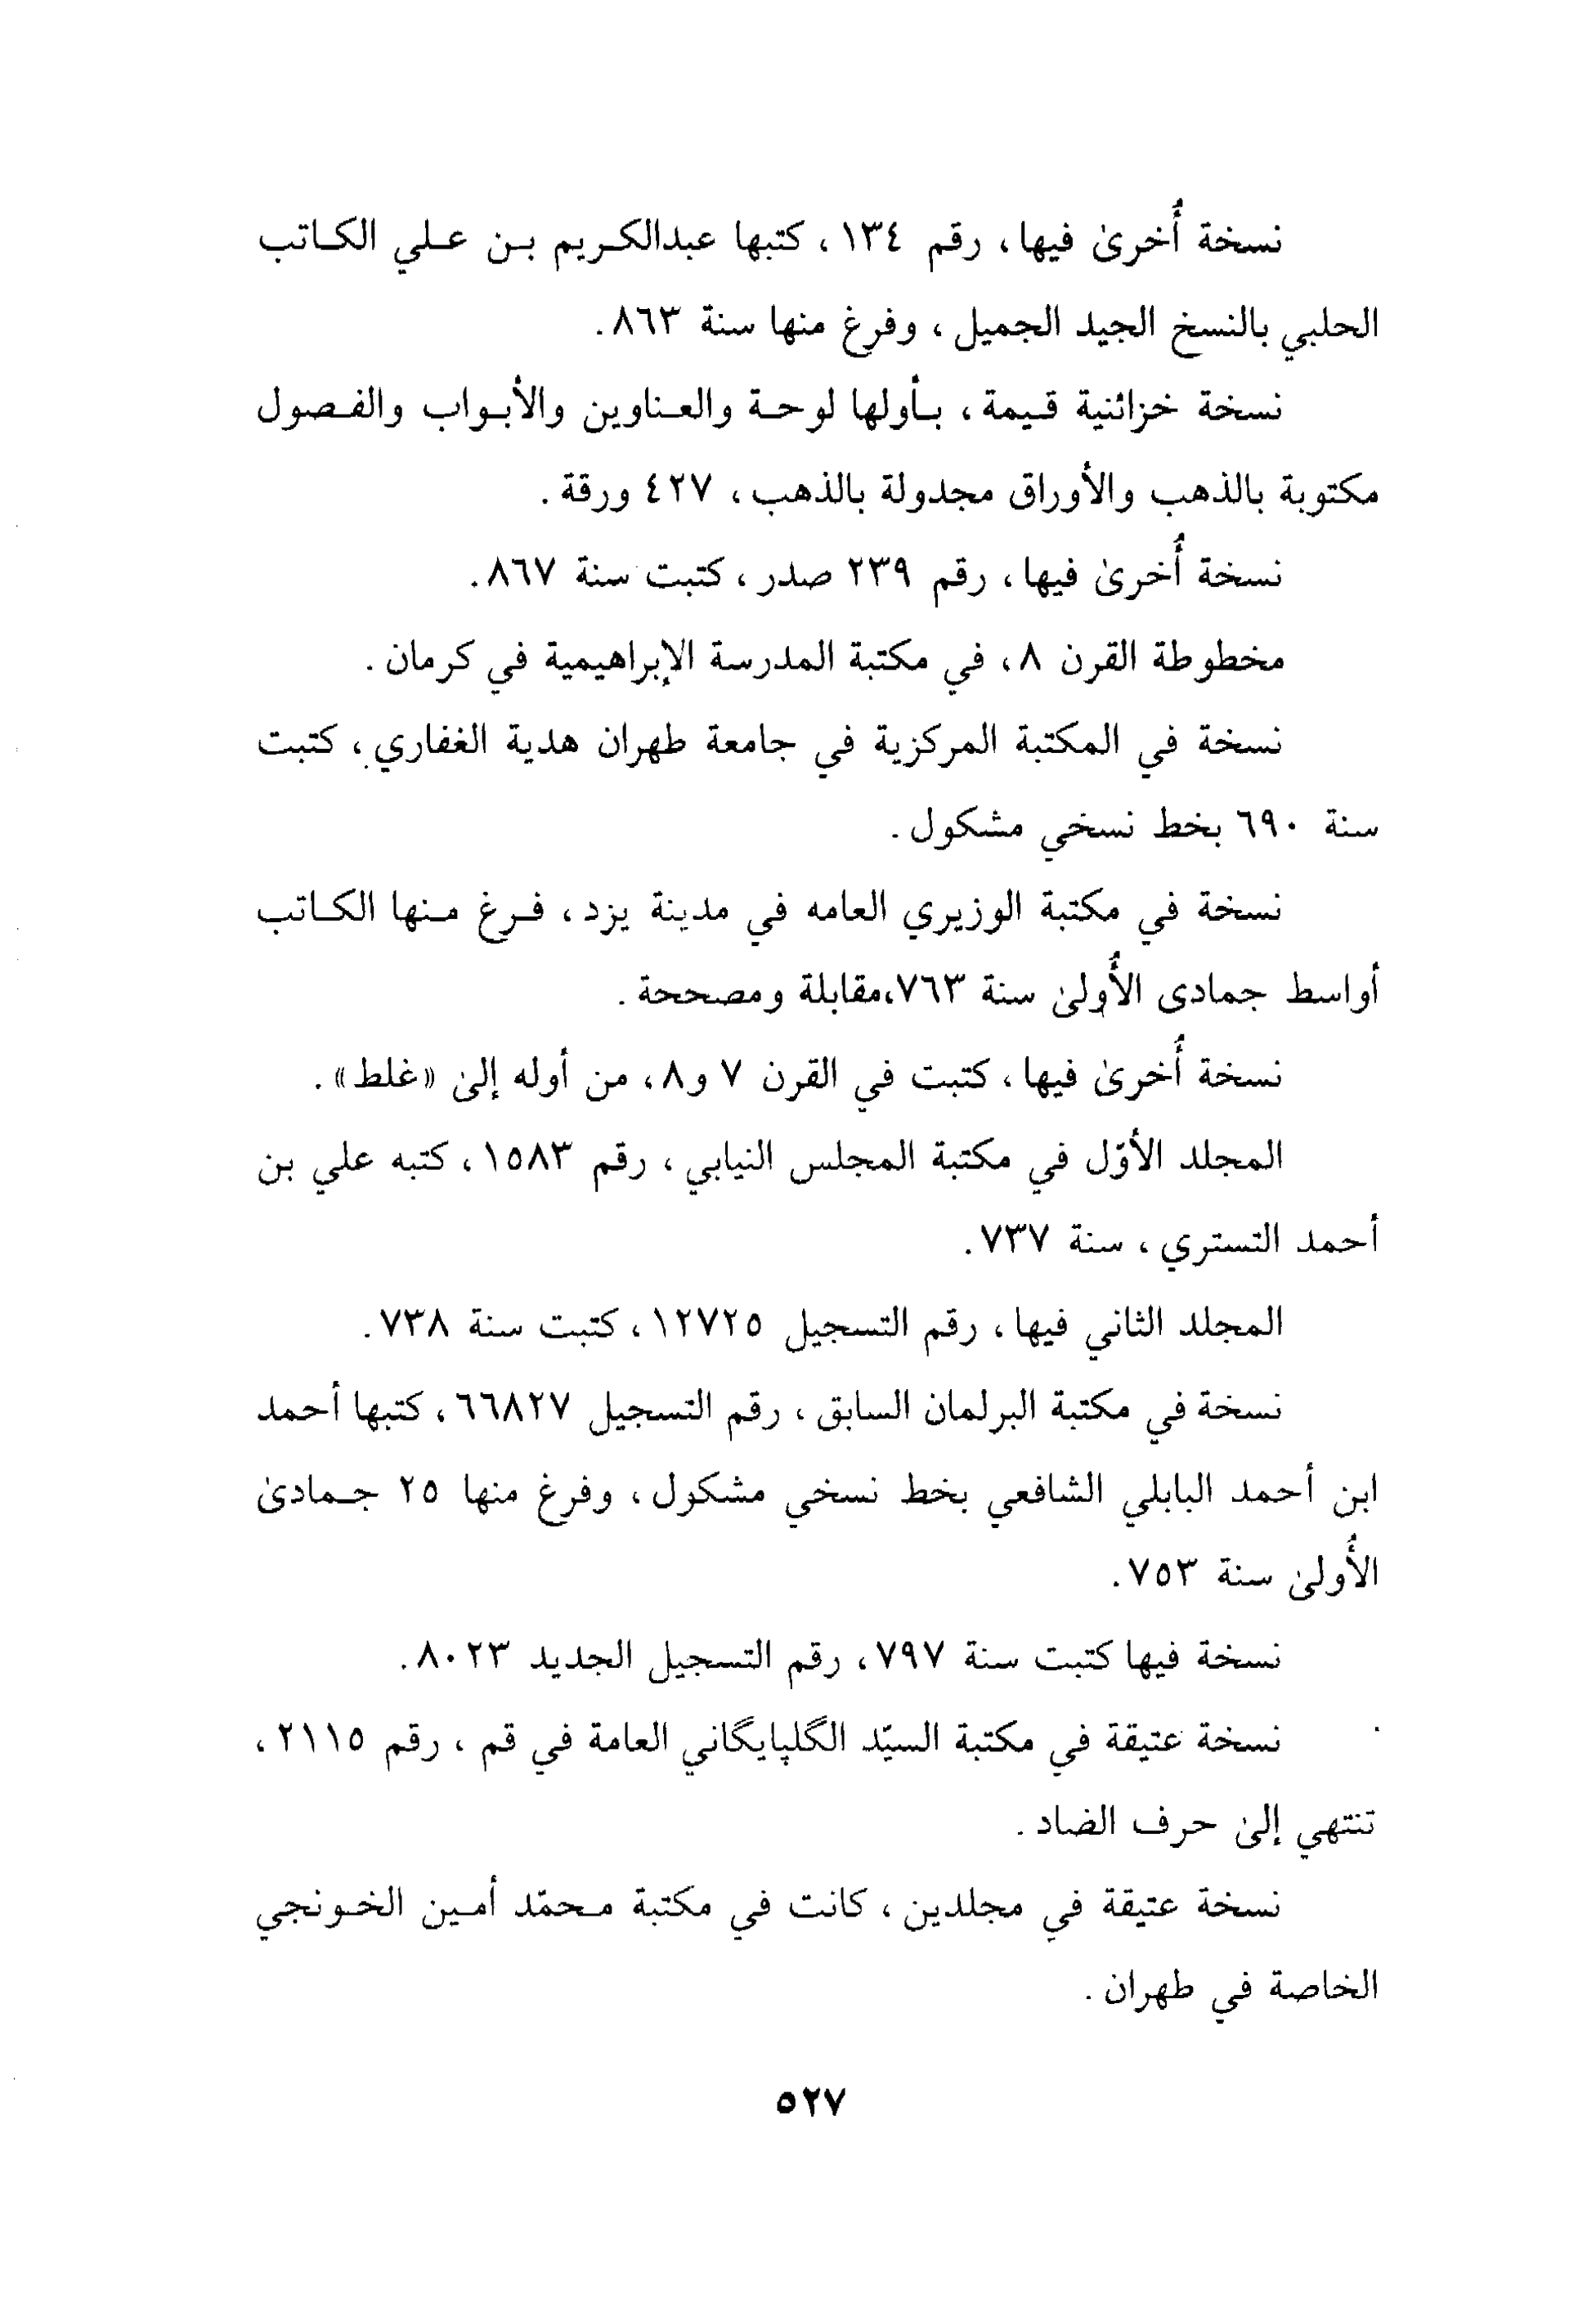 نسخة أُخرىٰ فيها، رقم ١٣٤، كتبها عبدالكريم بن علي الكاتب
الحلبي بالنسخ الجيد الجميل، وفرغ منها سنة ٨٦٣.
نسخة خزائنية قيمة، بأولها لوحة والعناوين والأبواب والفصول
مكتوبة بالذهب والأوراق مجدولة بالذهب، ٤٢٧ ورقة.
نسخة أُخرىٰ فيها، رقم ٢٣٩ صدر، كتبت سنة ٨٦٧.
مخطوطة القرن ٨، في مكتبة المدرسة الإبراهيمية في كرمان.
نسخة في المكتبة المركزية في جامعة طهران هدية الغفاري، كتبت
سنة ٦٩٠ بخط نسخي مشكول.
نسخة في مكتبة الوزيري العامه في مدينة يزد، فرغ منها الكاتب
أواسط جمادى الأُولىٰ سنة ٧٦٣،مقابلة ومصححة.
نسخة أُخرىٰ فيها، كتبت في القرن ٧ و٨، من أوله إلىٰ «غلط».
المجلد الأوّل في مكتبة المجلس النيابي، رقم ١٥٨٣، كتبه علي بن
أحمد التستري، سنة ٧٣٧.
المجلد الثاني فيها، رقم التسجيل ١٢٧٢٥، كتبت سنة ٧٣٨.
نسخة في مكتبة البرلمان السابق، رقم التسجيل ٦٦٨٢٧، كتبها أحمد
ابن أحمد البابلي الشافعي بخط نسخي مشكول، وفرغ منها ٢٥ جمادىٰ
الأُولىٰ سنة ٧٥٣.
نسخة فيها كتبت سنة ٧٩٧، رقم التسجيل الجديد ٨٠٢٣.
نسخة عتيقة في مكتبة السيّد الگلپايگاني العامة في قم، رقم ٢١١٥،
تنتهي إلىٰ حرف الضاد.
نسخة عتيقة في مجلدين، كانت في مكتبة محمّد أمين الخونجي
الخاصة في طهران.
٥٢٧